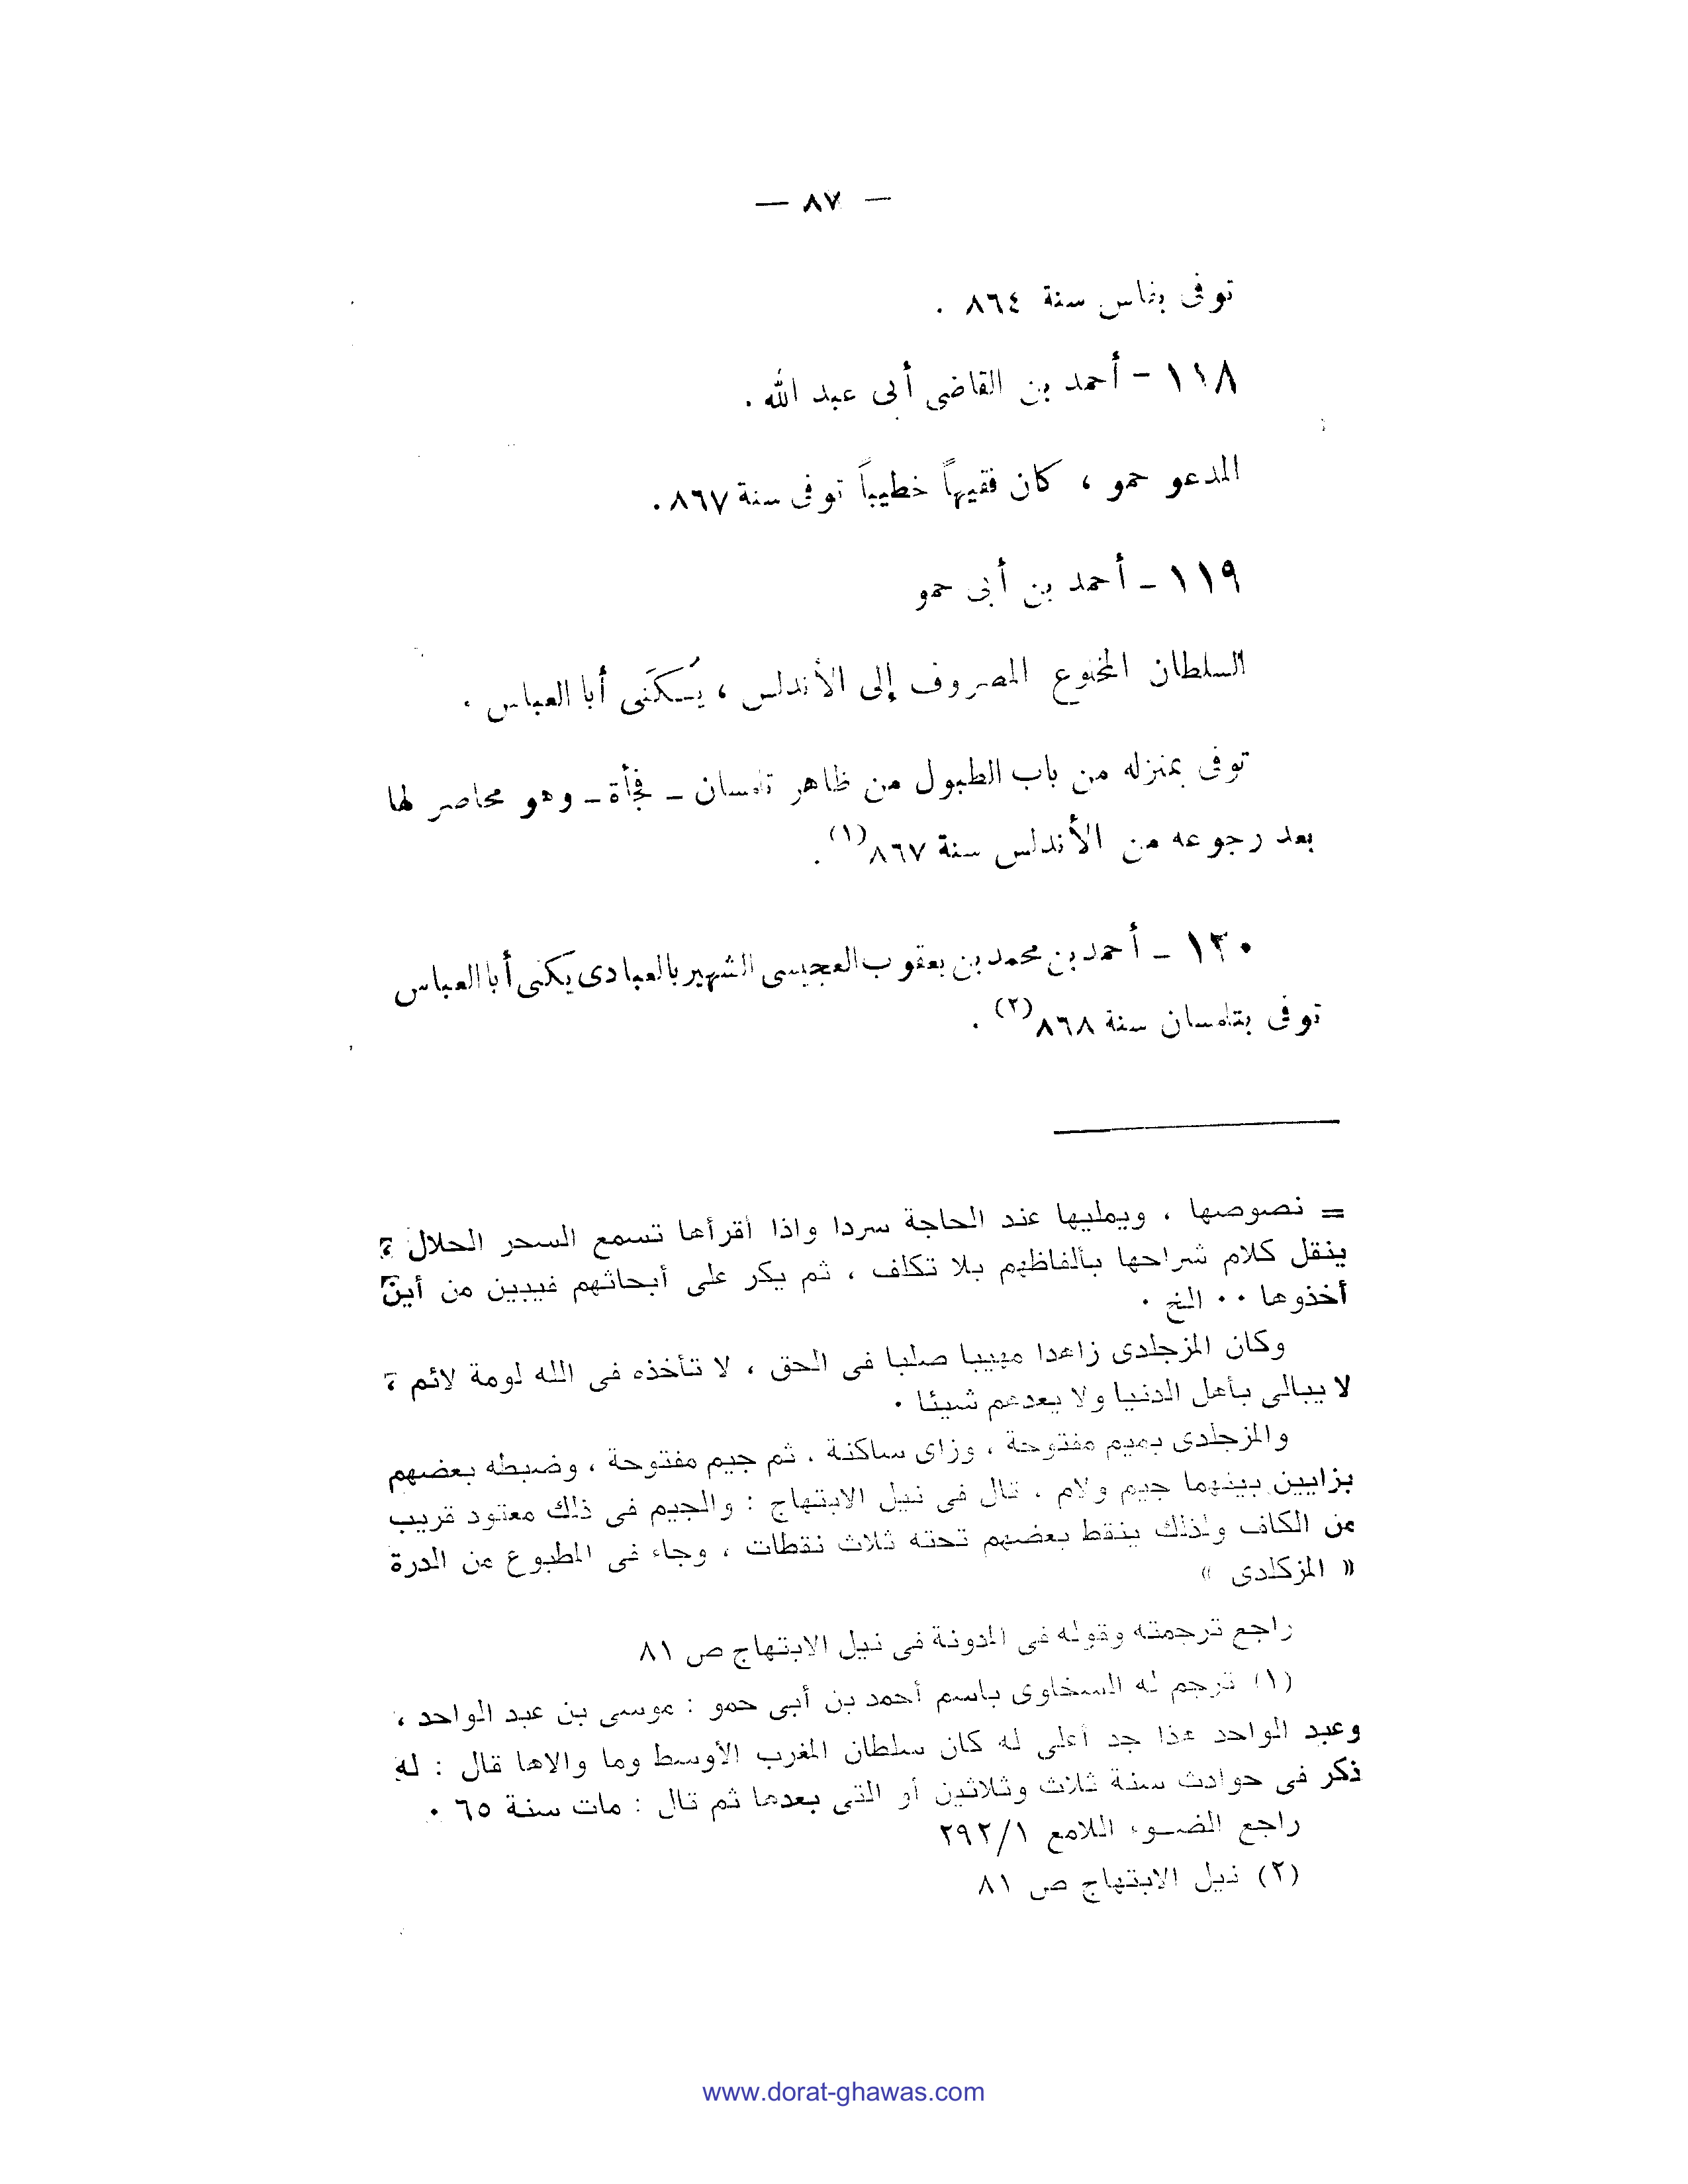 — ٨٧ —
توفى بفاس سنة ٨٦٤ .
١١٨ - أحمد بن القاضى أبى عبد الله .
المدعو حمو ، كان فقيهاً خطيباً توفى سنة ٨٦٧ .
١١٩ - أحمد بن أبى حمو
السلطان المخلوع المصروف إلى الأندلس ، يُكَنى أبا العباس .
توفى بمنزله من باب الطبول من ظاهر تلمسان - فجأة - وهو محاصر لها
بعد رجوعه من الأندلس سنة ٨٦٧ (١) .
١٢٠ - أحمد بن محمد بن يعقوب العجيسى الشهير بالعبادى يكنى أبا العباس
توفى بتلمسان سنة ٨٦٨ (٢) .
= نصوصها ، ويمليها عند الحاجة سردا واذا أقرأها تسمع السحر الحلال ،
ينقل كلام شراحها بألفاظهم بلا تكلف ، ثم يكر على أبحاثهم فيبين من أين
أخذوها ٠٠ الخ ٠
وكان المزجلدى زاهدا مهيبا صلبا فى الحق ، لا تأخذه فى الله لومة لائم ،
لا يبالى بأهل الدنيا ولا يعدهم شيئا ٠
والمزجلدى بميم مفتوحة ، وزاى ساكنة ، ثم جيم مفتوحة ، وضبطه بعضهم
بزايين بينهما جيم ولام ، قال فى نيل الابتهاج : والجيم فى ذلك معقود قريب
من الكاف ولذلك ينقط بعضهم تحته ثلاث نقطات ، وجاء فى المطبوع من الدرة
« المزكلدى »
راجع ترجمته وقوله فى المدونة فى نيل الابتهاج ص ٨١
(١) ترجم له السخاوى باسم أحمد بن أبى حمو : موسى بن عبد الواحد ،
وعبد الواحد هذا جد أعلى له كان سلطان المغرب الأوسط وما والاها قال : له
ذكر فى حوادث سنة ثلاث وثلاثين أو التى بعدها ثم قال : مات سنة ٦٥ ٠
راجع الضـوء اللامع ٢٩٢/١
(٢) نيل الابتهاج ص ٨١
www.dorat-ghawas.com